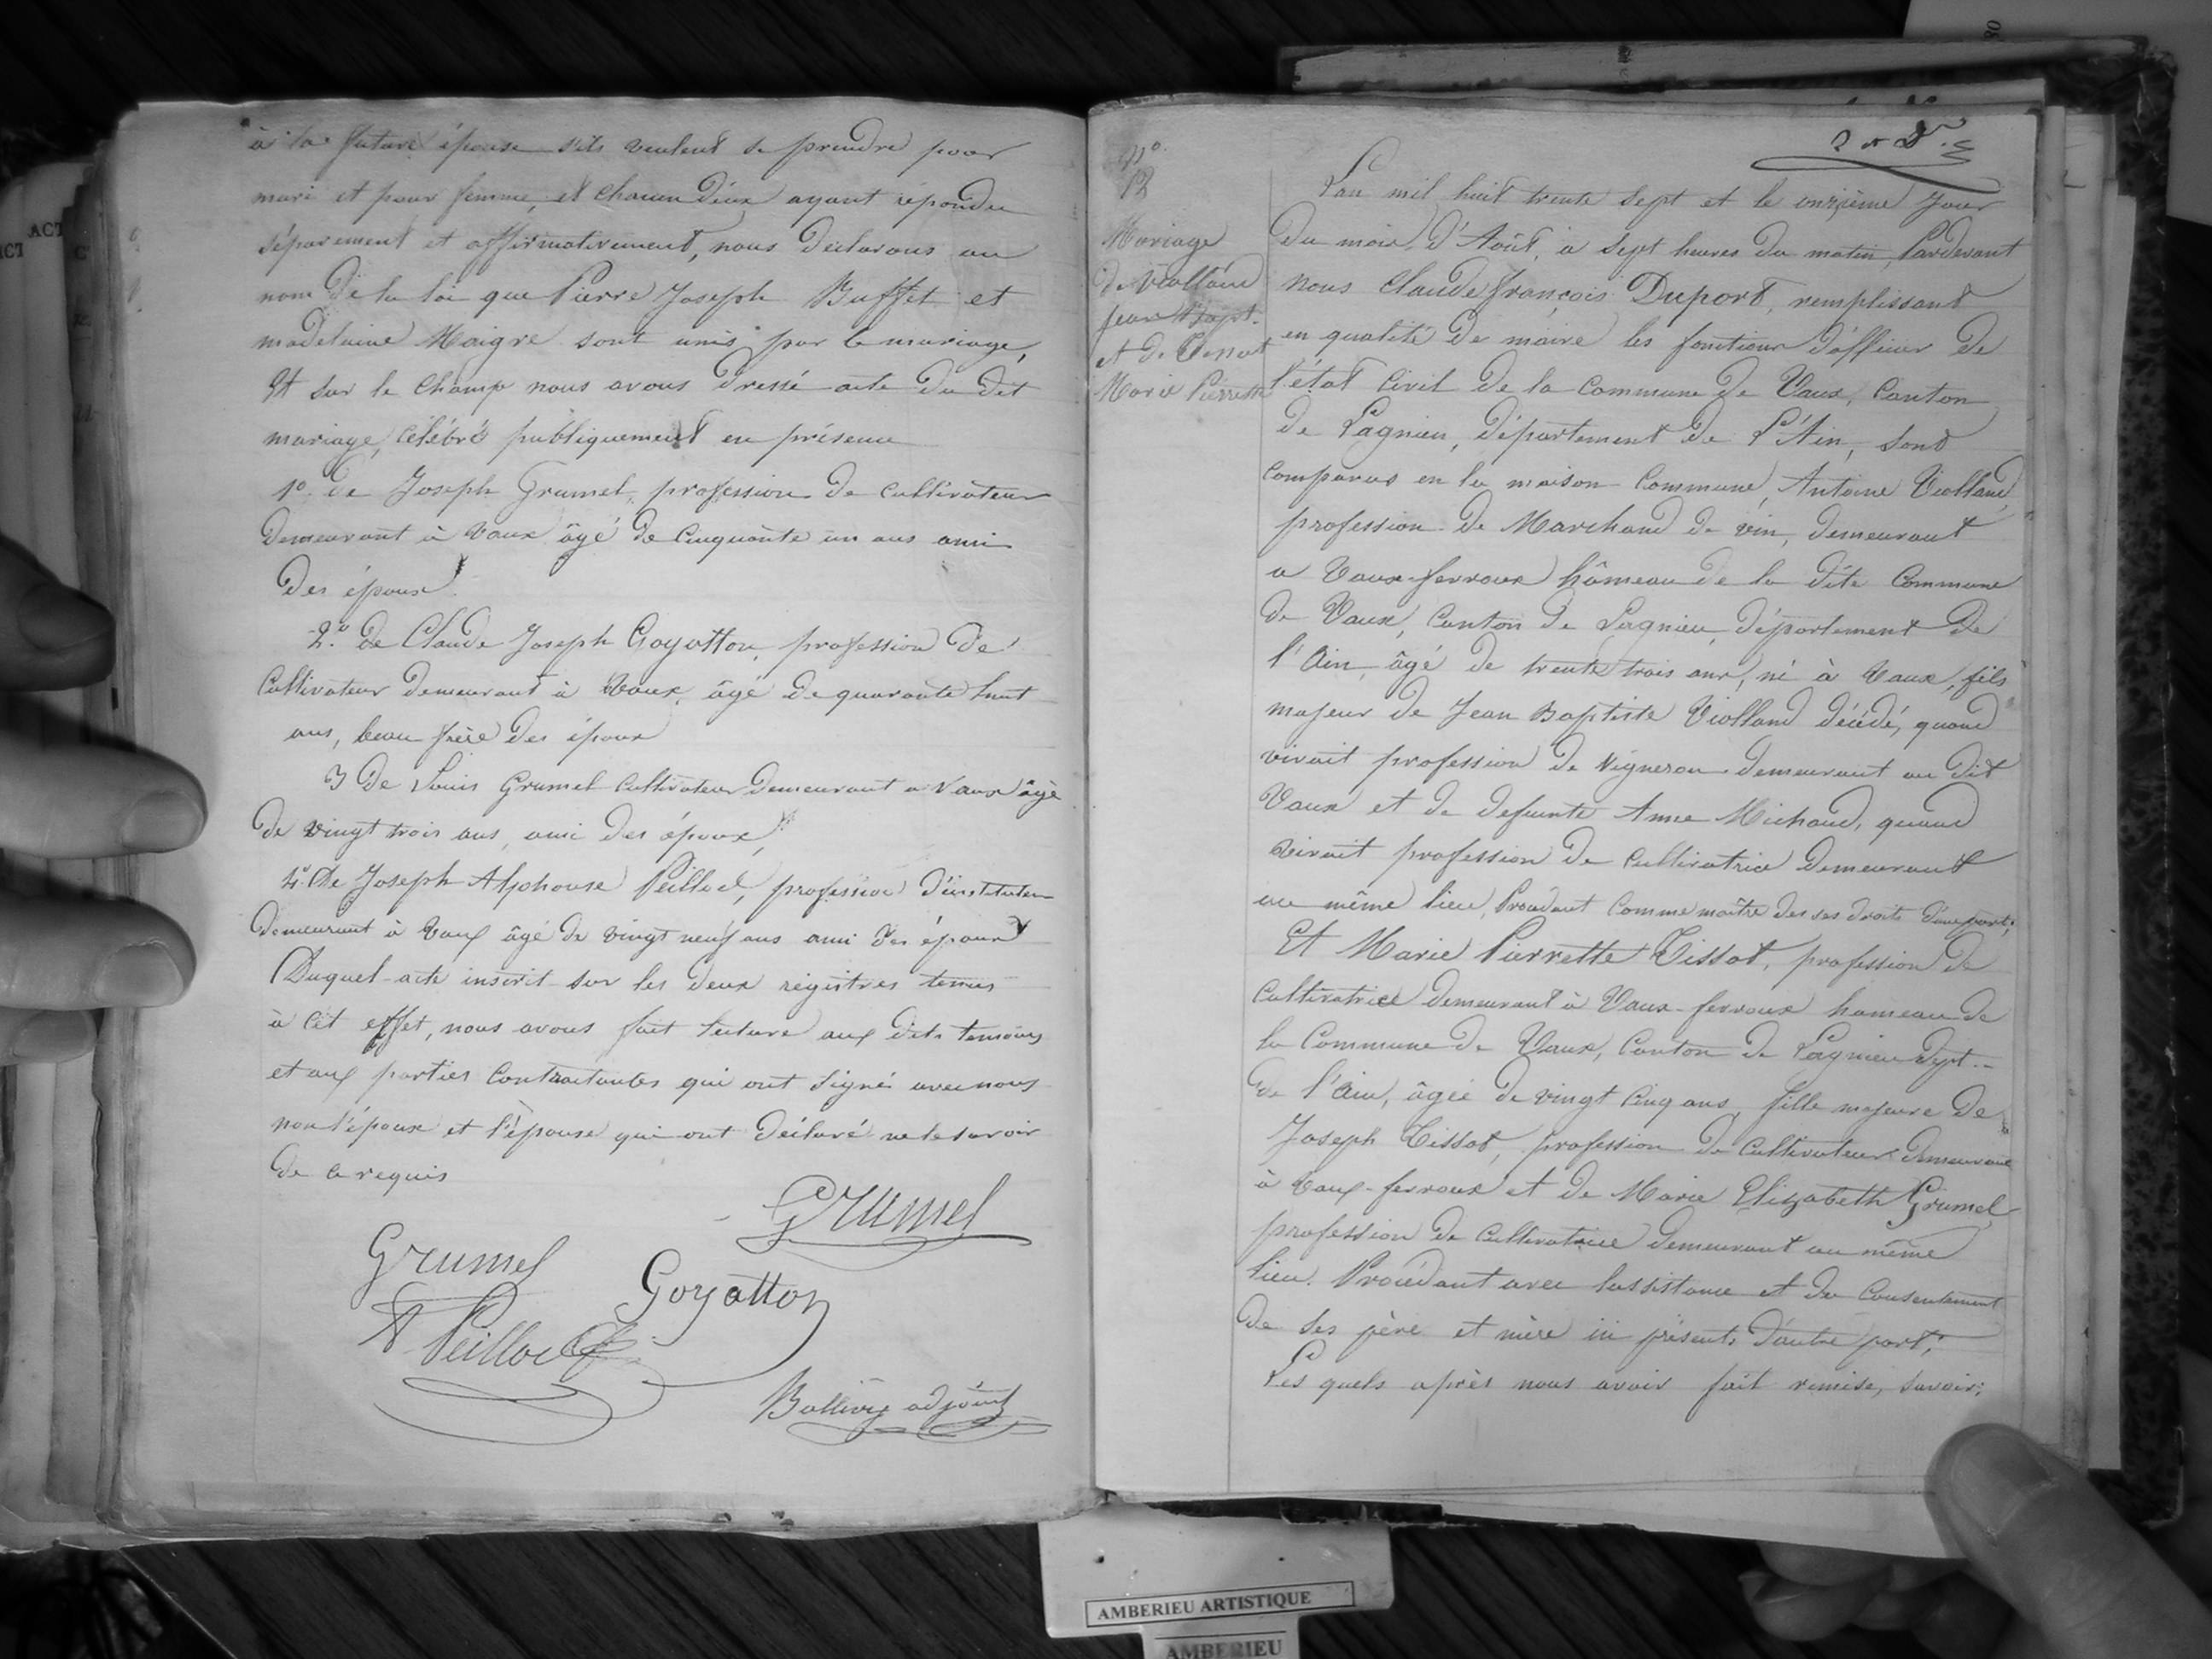 à la future épouse s'ils veulent se prendre pour
mari et pour femme, et chacun d'eux ayant répondu
séparement et affirmativement, nous déclarons au
nom de la loi que Pierre Joseph Buffet et
madelaine Maigre sont unis par le mariage,
Et sur le champ nous avons dressé acte du dit
mariage, célébré publiquement en présence
1º. de Joseph Grumel, profession de cultivateur
demeurant à Vaux âgé de cinquante un ans ami
des époux
2.º de Claude Joseph Goyatton, profession de
cultivateur demeurant à Vaux, âgé de quarante huit
ans, beau frère des époux
3 de Louis Grumel cultivateur demeurant a Vaux âgé
de vingt trois ans, ami des époux,
4º. De Joseph Alphonse Peillod, profession d'instituteur
demeurant à Vaux âgé de vingt neuf ans ami des époux
Duquel acte inscrit sur les deux régistres tenus
à cet effet, nous avons fait lecture aux dits temoins
et aux parties contractantes qui ont signé avec nous
non l'époux et l'épouse qui ont déclaré ne le savoir
de ce requis
Grumel
Grumel
Goyatton
Peillod
adjoint
Nº.
12
Mariage
de Violland
Jean Bapt.
et de Tissot
Marie Pierrette
L'an mil huit trente sept et le onzième Jour
du mois d'Août, à sept heures du matin, Pardevant
nous Claude françois Duport, remplissant
en qualité de maire les fonctions d'officier de
l'état civil de la commune de Vaux, Canton
de Lagnieu, département de L'Ain, sont
comparus en la maison commune, Antoine Violland,
profession de Marchand de vin, demeurant
a Vaux-ferroux hâmeau de la dite Commune
de Vaux, Canton de Lagnieu, département de
l'Ain, âgé de trente trois ans, né à Vaux, fils
majeur de Jean Baptiste Violland décédé, quand
vivait profession de Vigneron demeurant au dit
Vaux et de defunte Anne Michaud, quand
vivait profession de cultivatrice demeurant
au même lieu, Procédant comme maître des ses droits d'une part;
Et Marie Pierrette Tissot, profession de
cultivatrice demeurant à Vaux-ferroux hameau de
la Commune de Vaux, Canton de Lagnieu Dept..
de l'Ain, âgée de vingt cinq ans, fille majeure de
Joseph Tissot, profession de cultivateur demeurant
à Vaux-ferroux et de Marie Elizabeth Grumel
profession de cultivatrice demeurant au même
lieu. Procédant avec l'assistance et du consentement
de ses père et mère ici présents d'autre part;
Les quels après nous avoir fait remise, savoir;
AMBERIEU ARTISTIQUE
AMBERIEU